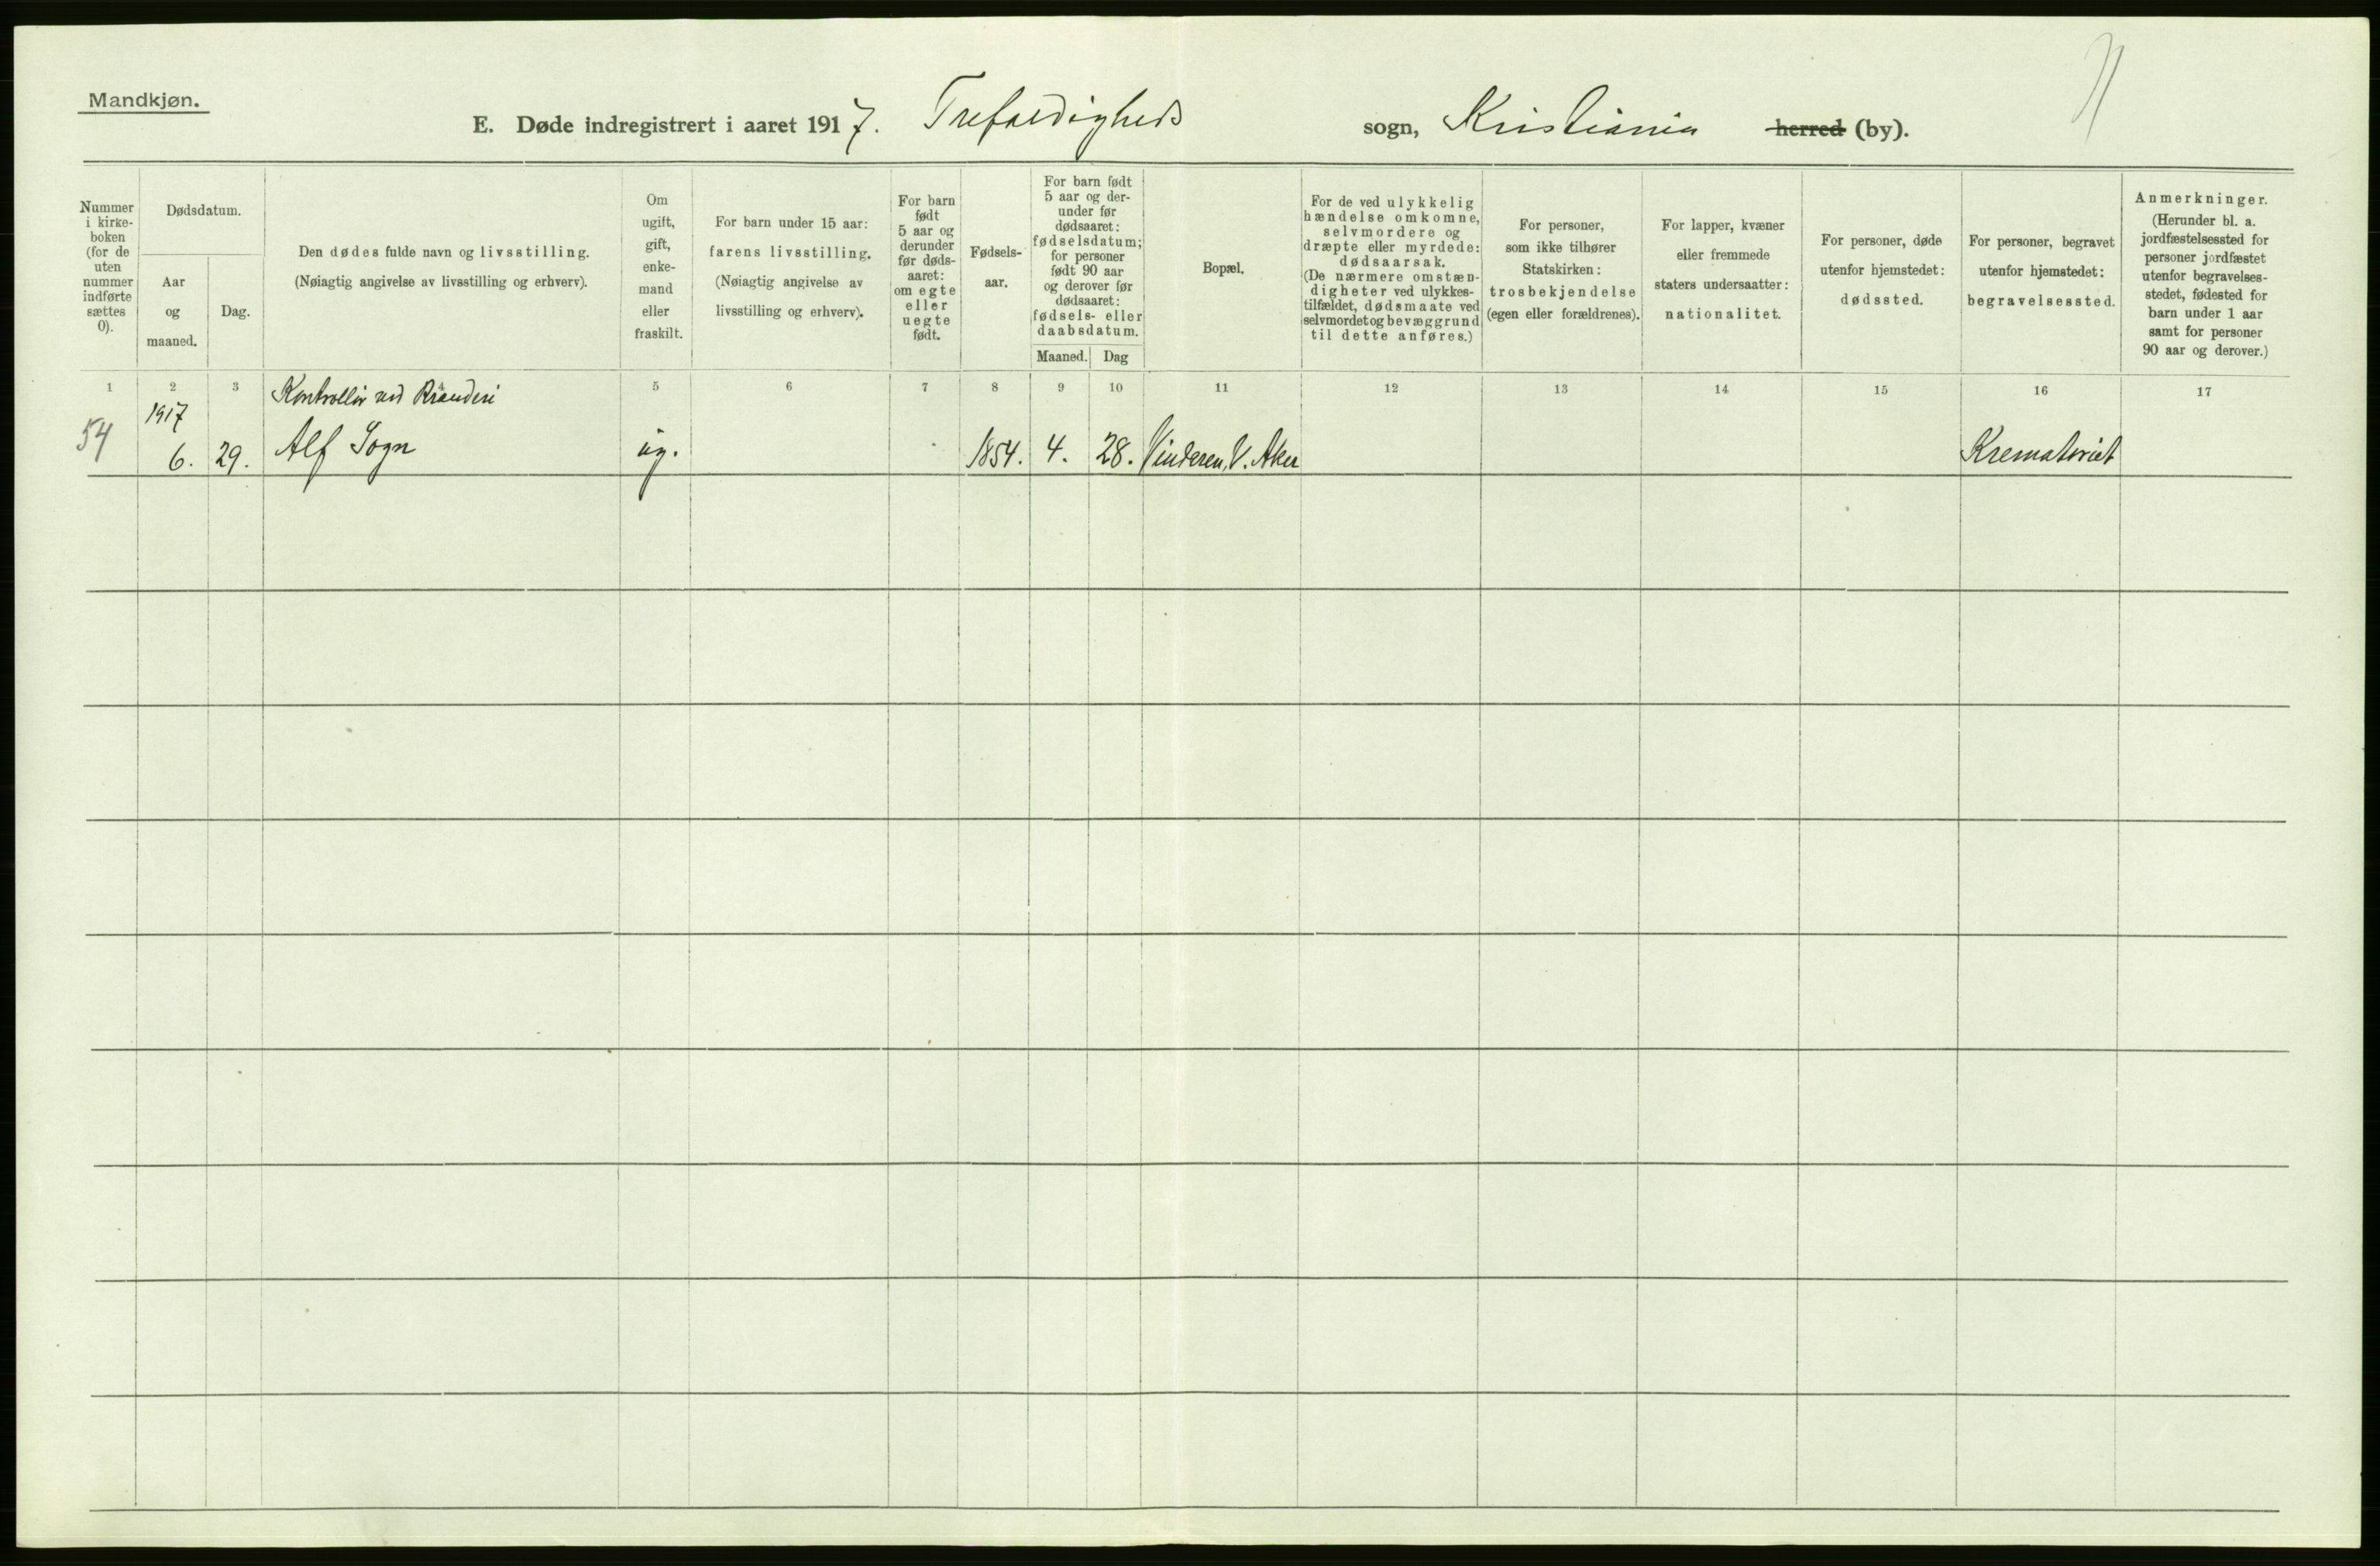 Mandkjøn.
E. Døde indregistrert i aaret 1917. Trefoldigheds sogn, Kristiania herred (by).
Nummer
i kirke-
boken
(for de
uten
nummer
indførte
sættes
0).
Dødsdatum.
Aar
og
maaned.
Dag.
Den dødes fulde navn og livsstilling.
(Nøiagtig angivelse av livsstilling og erhverv).
Om
ugift,
gift,
enke-
mand
eller
fraskilt.
For barn under 15 aar:
farens livsstilling.
(Nøiagtig angivelse av
livsstilling og erhverv).
For barn
født
5 aar og
derunder
før døds-
aaret:
om egte
eller
uegte
født.
Fødsels-
aar.
For barn født
5 aar og der-
under før
dødsaaret:
fødselsdatum;
for personer
født 90 aar
og derover før
dødsaaret:
fødsels- eller
daabsdatum.
Maaned. Dag
Bopæl.
For de ved ulykkelig
hændelse omkomne,
selvmordere og
dræpte eller myrdede:
dødsaarsak.
(De nærmere omstæn-
digheter ved ulykkes-
tilfældet, dødsmaate ved
selvmordet og bevæggrund
til dette anføres.)
For personer,
som ikke tilhører
Statskirken:
trosbekjendelse
(egen eller forældrenes).
For lapper, kvæner
eller fremmede
staters undersaatter:
nationalitet.
For personer, døde
utenfor hjemstedet:
dødssted.
For personer, begravet
utenfor hjemstedet:
begravelsessted.
Anmerkninger.
(Herunder bl. a.
jordfæstelsessted for
personer jordfæstet
utenfor begravelses-
stedet, fødested for
barn under 1 aar
samt for personer
90 aar og derover.)
1 2 3 5 6 7 8 9 10 11 12 13 14 15 16 17
Kontrollør ved
1917
54 6. 29. Alf Sogn ug. 1854. 4. 28. Vinderen, V. Aker Krematoriet